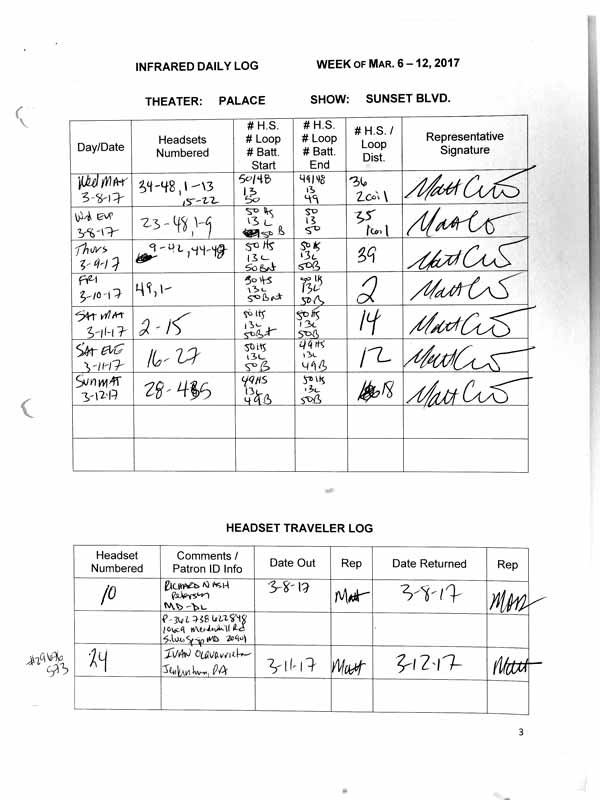 INFRARED DAILY LOG WEEK OF MAR. 6 – 12, 2017
THEATER: PALACE SHOW: SUNSET BLVD.
Day/Date
Headsets Numbered
# H.S. # Loop # Batt. Start
# H.S. # Loop # Batt. End
# H.S. / Loop Dist.
Representative Signature
Wed MAT 3-8-17
34-48, 1-13 15-22
50/48 13 50
49/48 13 49
36 2 coil
Wd EVE 3-8-17
23-48, 1-9
50 HS 13 L 50 B
50 13 50
35 1 coil
Thurs 3-9-17
9-42, 44-48
50 HS 13L 50 Bat
50 HS 13L 50B
39
FRI 3-10-17
49, 1-
50 HS 13L 50 Bat
50 HS 13L 50B
2
SAT MAT 3-11-17
2-15
50 HS 13L 50 Bt
50 HS 13L 50B
14
SAT EVE 3-11-17
16-27
50 HS 13L 50B
49 HS 13L 49B
12
SUN MAT 3-12-17
28-45
49 HS 13L 49B
50 HS 13L 50B
18
HEADSET TRAVELER LOG
Headset Numbered
Comments / Patron ID Info
Date Out
Rep
Date Returned
Rep
10
RICHARD NASH Petersen MD-DL
3-8-17
Matt
3-8-17
Matt
P-362738622848
Silver Spg MD
24
IVAN
3-11-17
Matt
3-12-17
Matt
Jenkintown, PA
3